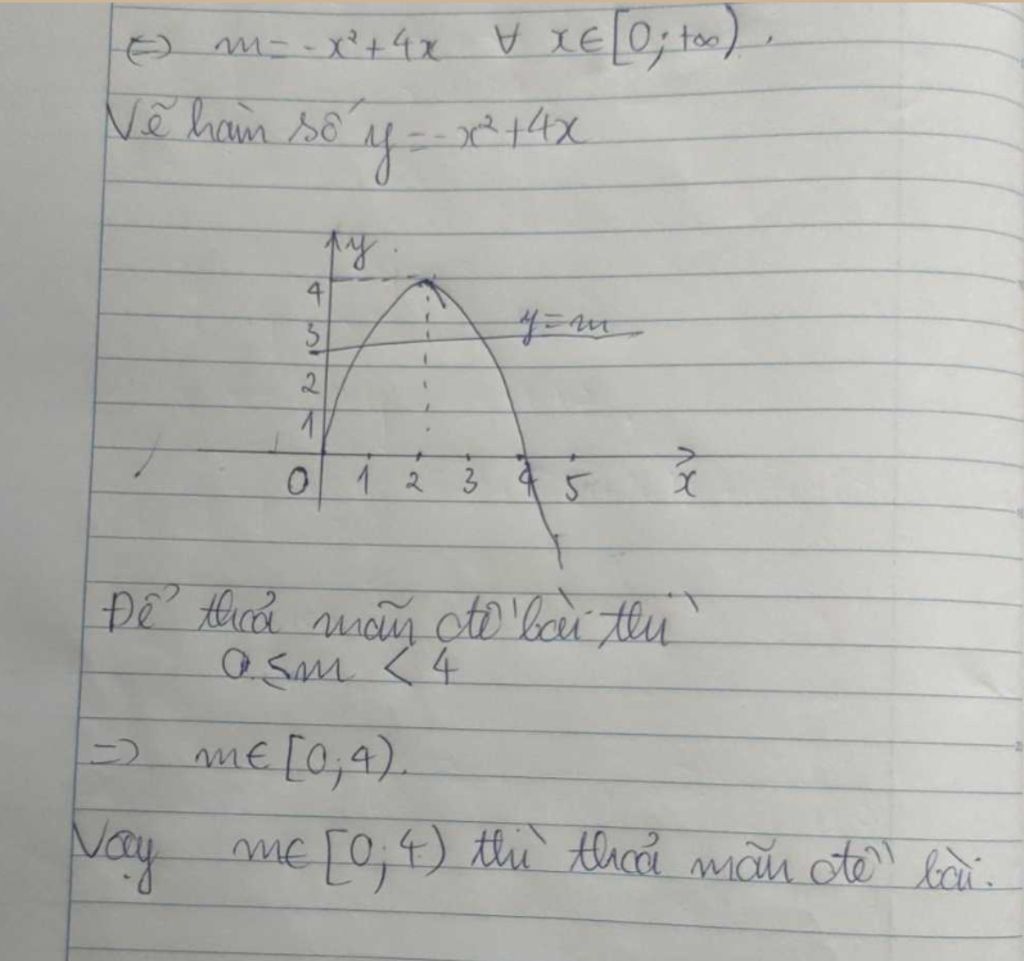 ⇔ m = -x² + 4x ∀ x ∈ [0; +∞).
Vẽ hàm số y = -x² + 4x
y
4
3
2
1
y = m
0 1 2 3 4 5 x
Để thoả mãn đề bài thì
0 ≤ m < 4
=> m ∈ [0; 4).
Vậy m ∈ [0; 4) thì thoả mãn đề bài.